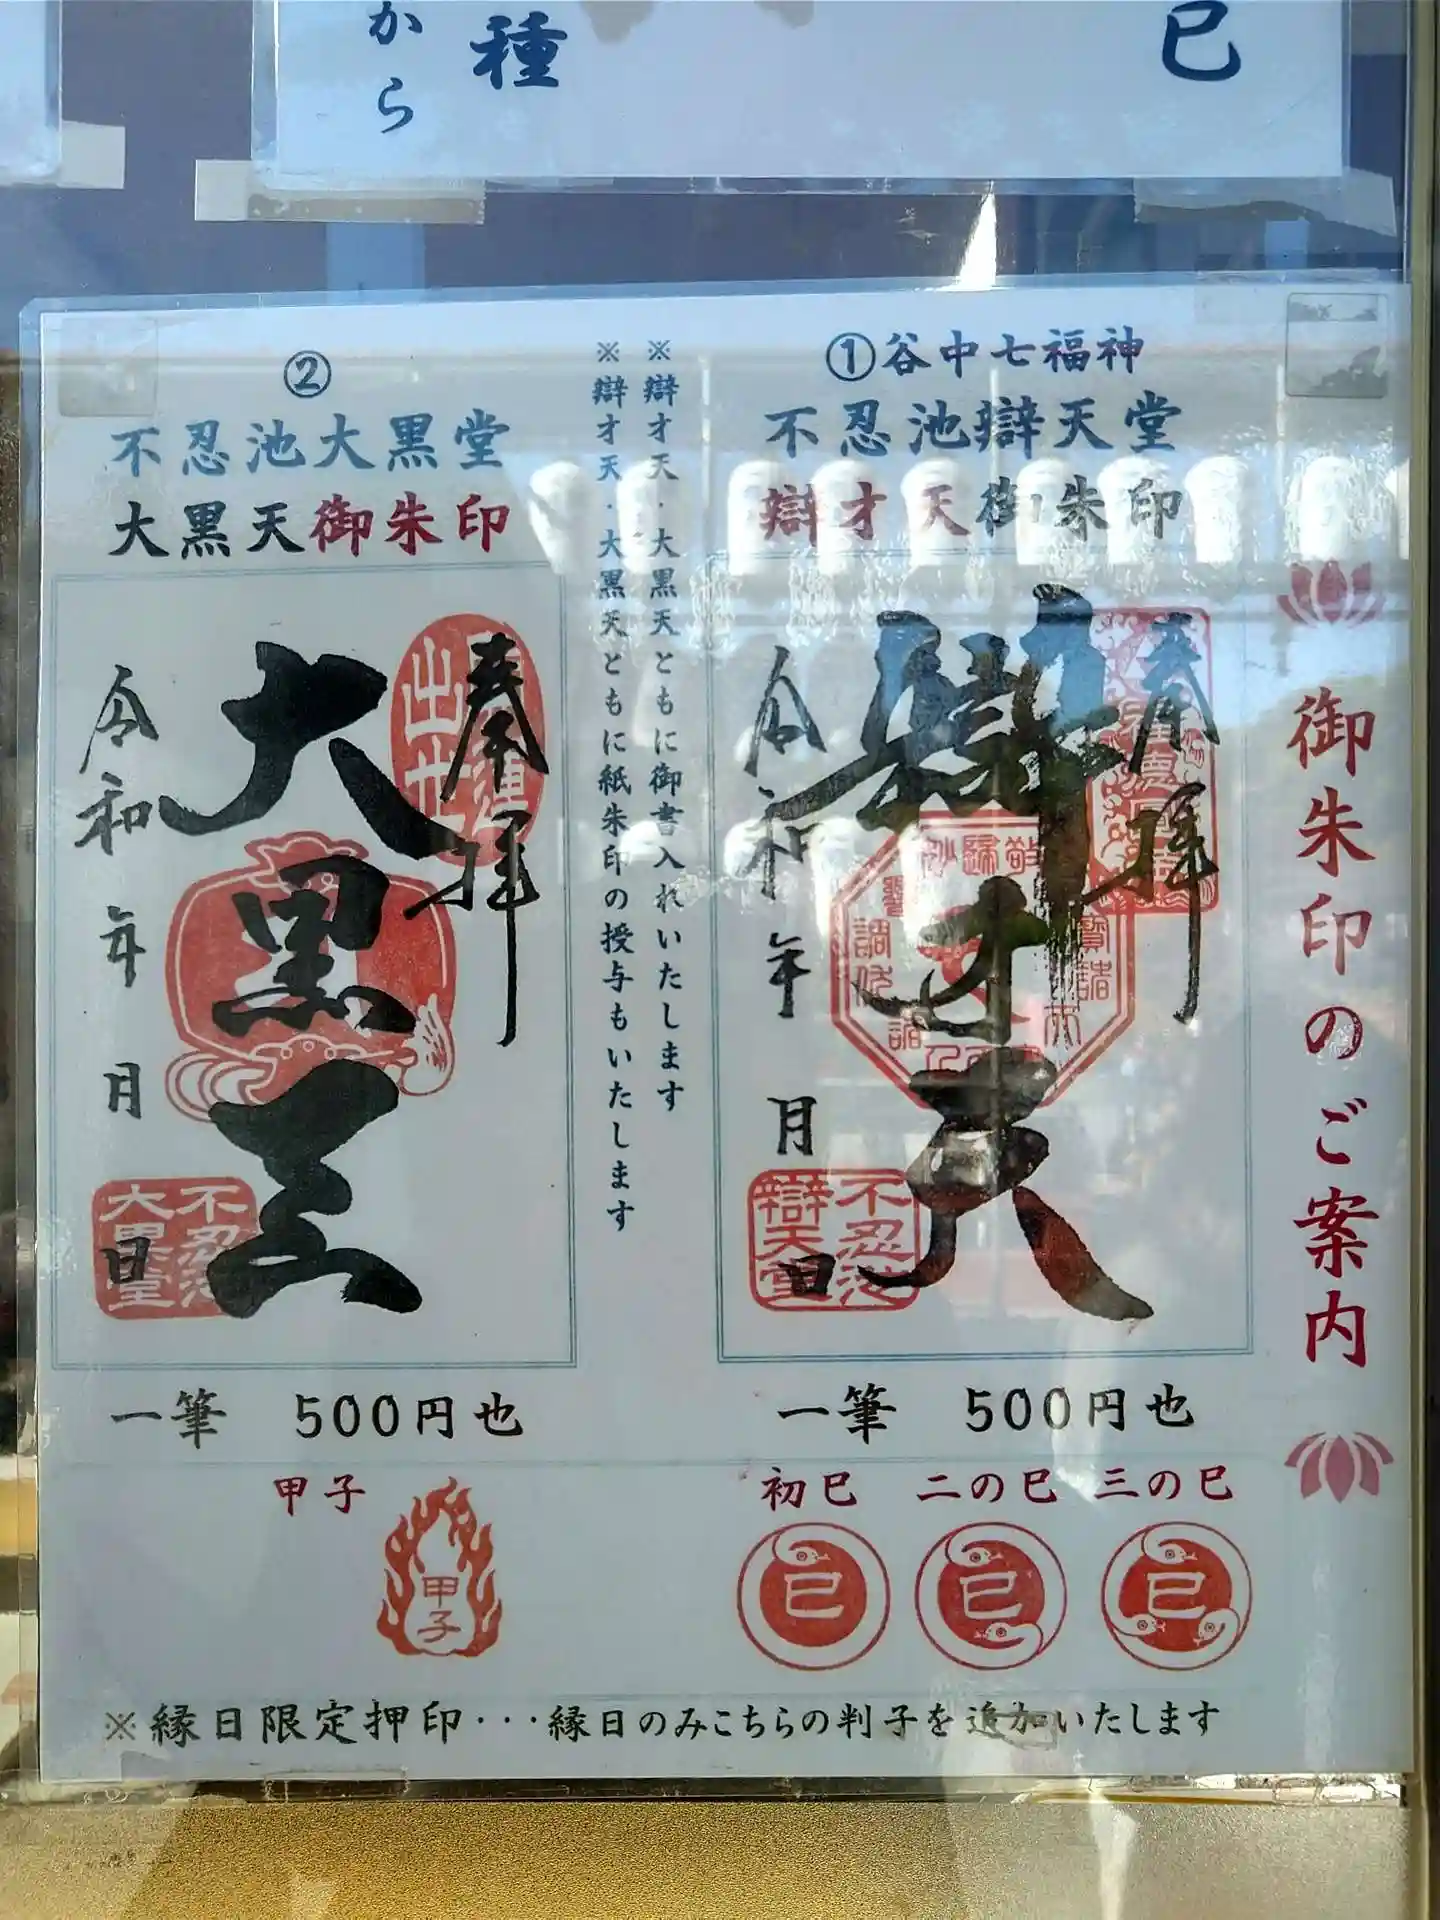 巳
種
から
御朱印のご案内
①谷中七福神
不忍池辯天堂
辯才天御朱印
奉拝
辯才天
令和 年 月 日
不忍池
辯天堂
一筆 500円也
初巳 二の巳 三の巳
巳 巳 巳
※辯才天・大黒天ともに御書入れいたします
※辯才天・大黒天ともに紙朱印の授与もいたします
②
不忍池大黒堂
大黒天御朱印
奉拝
大黒天
令和 年 月 日
不忍池
大黒堂
一筆 500円也
甲子
甲子
※縁日限定押印・・・縁日のみこちらの判子を追加いたします